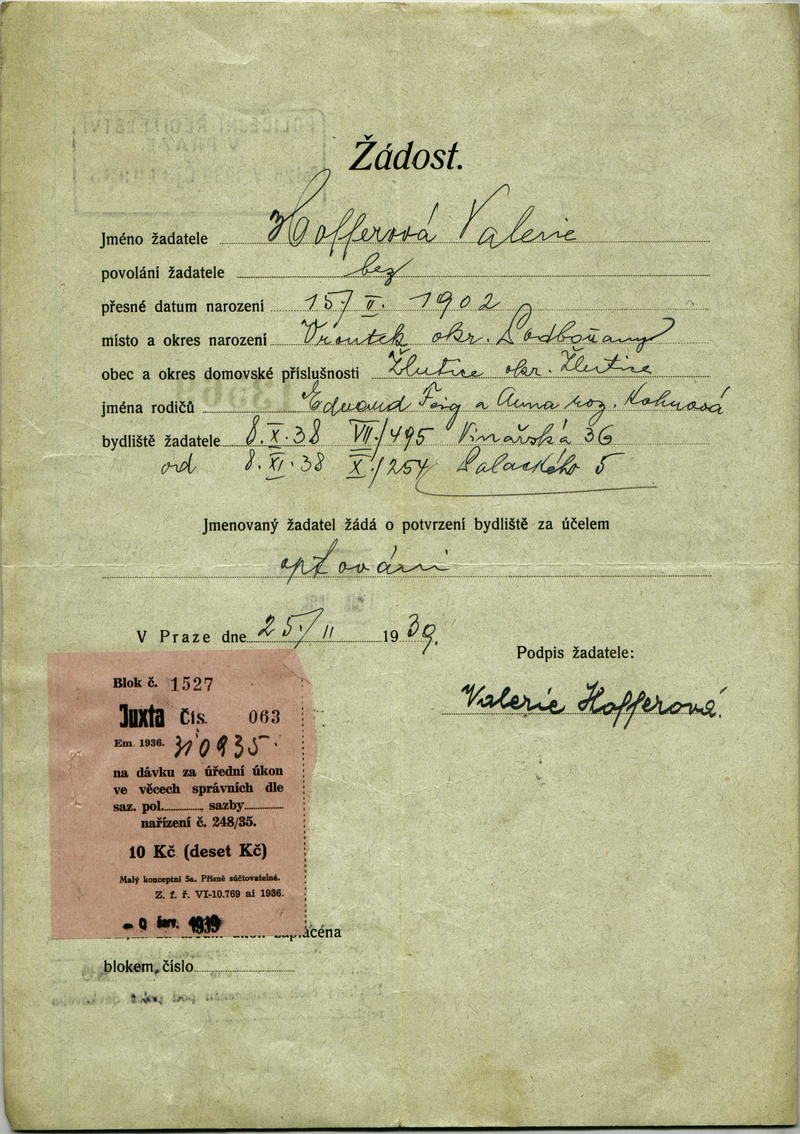 Žádost.
Jméno žadatele Hofferová Valerie
povolání žadatele bez
přesné datum narození 15/II. 1902
místo a okres narození Vroutek okr. Podbořany
obec a okres domovské příslušnosti Žlutice okr. Žlutice
jména rodičů Eduard Feig a Anna roz. Kohnová
bydliště žadatele 8.X.38 VII/495 Vinařská 36
od 8.XI.38 X./254 Palackého 5
Jmenovaný žadatel žádá o potvrzení bydliště za účelem
optování
V Praze dne 25./II 1939.
Podpis žadatele:
Valerie Hofferová.
Blok č. 1527
Juxta Čís. 063
Em. 1936. 10935
na dávku za úřední úkon
ve věcech správních dle
saz. pol. sazby
nařízení č. 248/35.
10 Kč (deset Kč)
Malý konceptní 5a. Přísně súčtovatelné.
Z. f. ř. VI-10.769 ai 1936.
1939
blokem, číslo